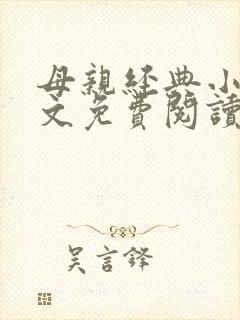 母親經典小
文免費閱讀
吳言鋒